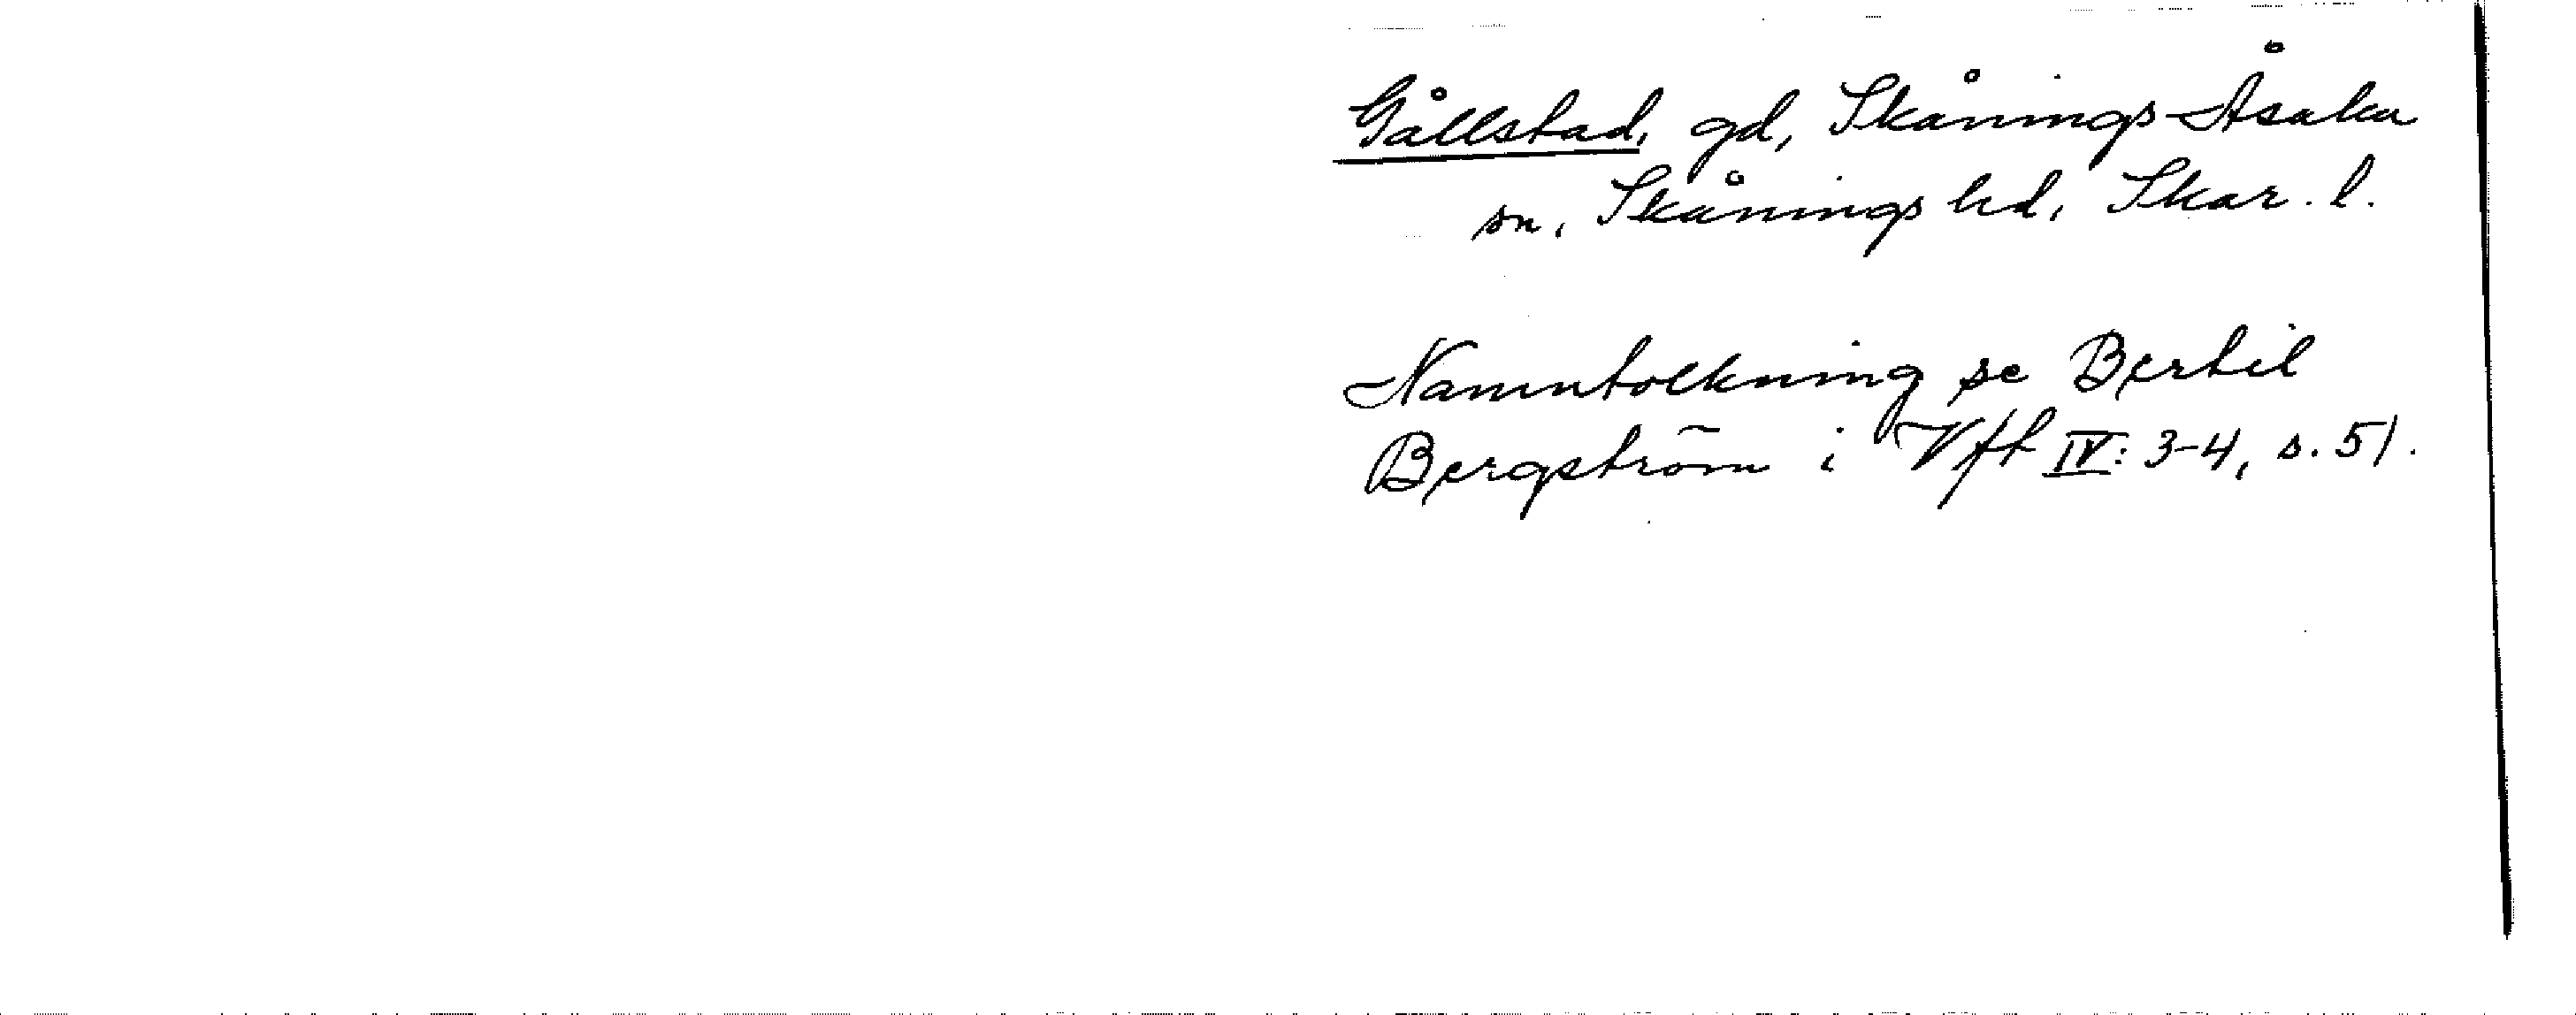 Gållstad, gd, Skånings-Åsaka
sn, Skånings hd, Skar. l.
Namntolkning se Bertil
Bergström i Vft IV: 3-4, s. 51.